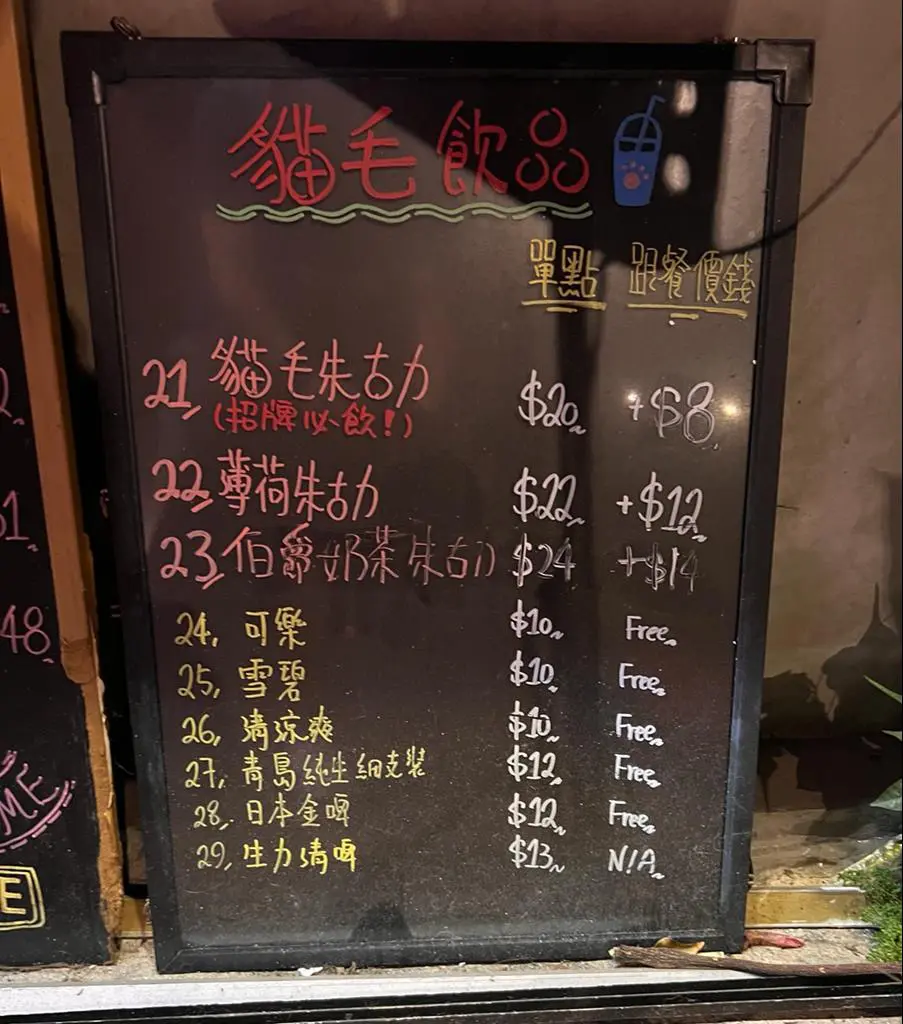 貓毛飲品
單點 跟餐價錢
21, 貓毛朱古力 $20 +$8
(招牌必飲!)
22, 薄荷朱古力 $22 +$12
23, 伯爵奶茶朱古力 $24 +$14
24, 可樂 $10 Free
25, 雪碧 $10 Free
26, 清涼爽 $10 Free
27, 青島純生細支裝 $12 Free
28, 日本金啤 $12 Free
29, 生力清啤 $13 N/A
48
ME
E